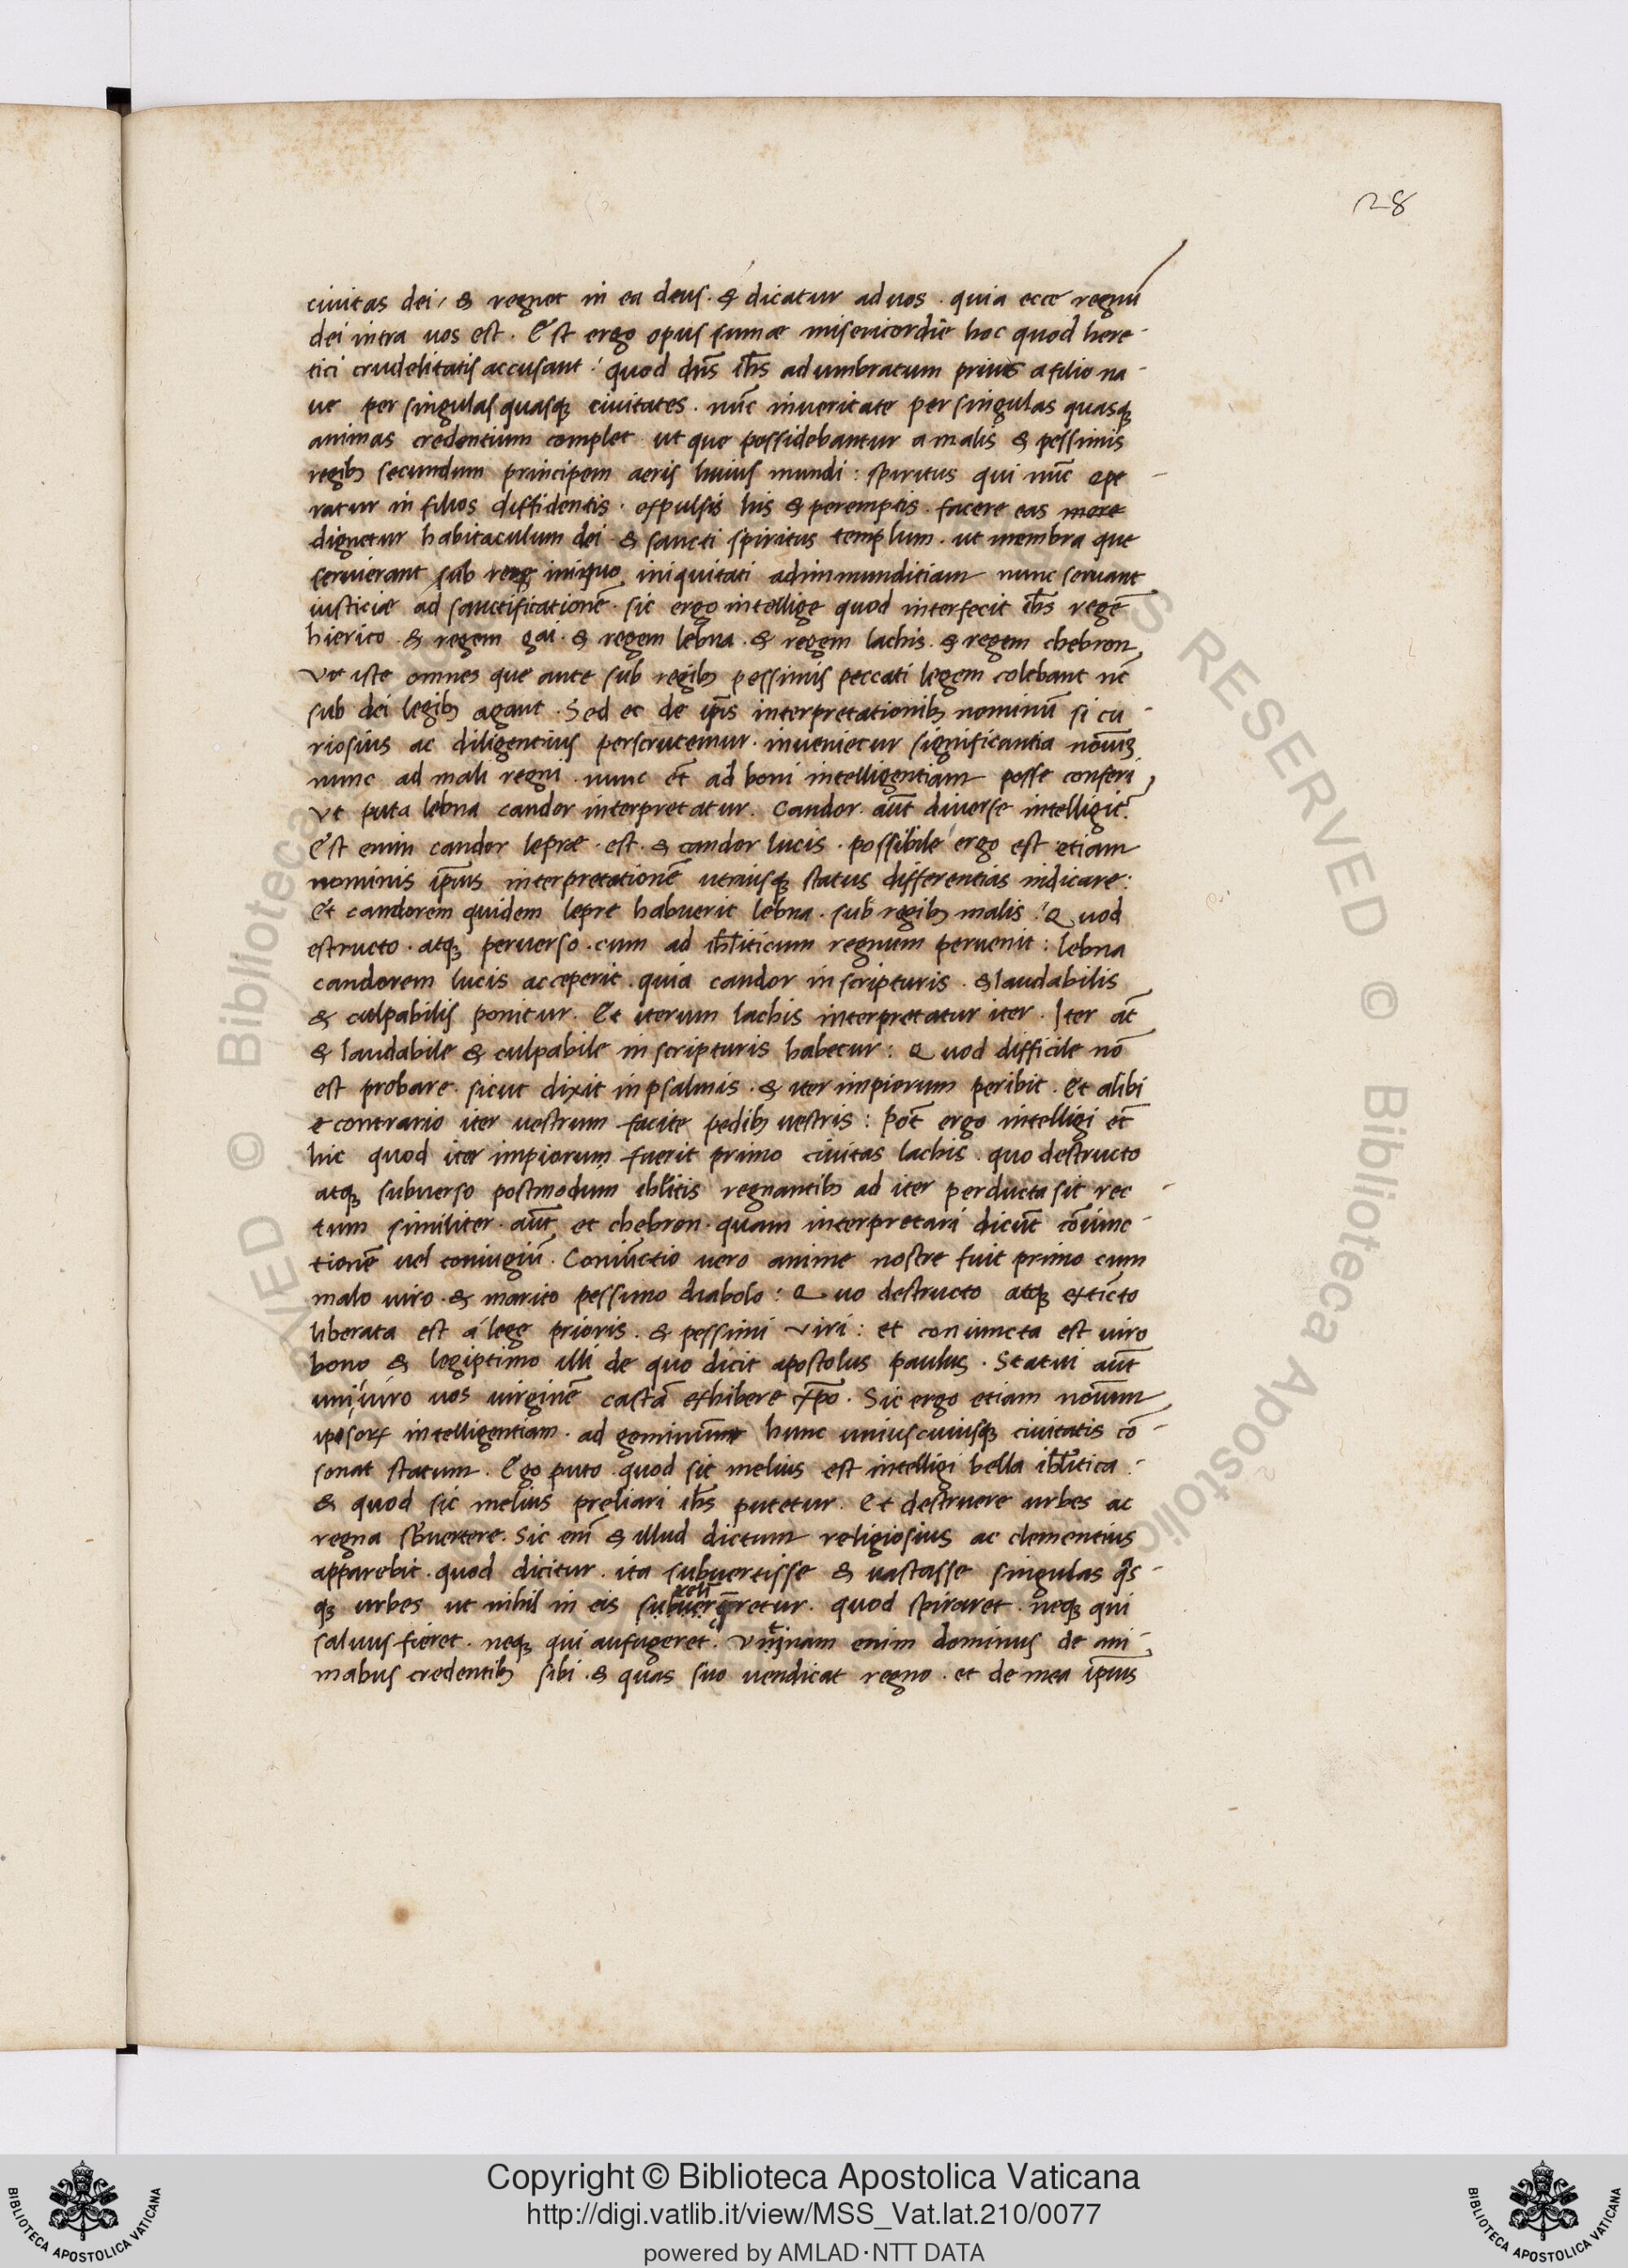 28
ciuitas dei, & regnet in ea deus. & dicatur ad uos. quia ecce regnū
dei intra uos est. Est ergo opus sumæ misericordie hoc quod here-
tici crudelitatis accusant: quod dn̄s ih̄s adumbratum prius a filio na-
ue per singulas quasq; ciuitates. nūc inueritate per singulas quasq;
animas credentium complet ut que possidebantur a malis & pessimis
regib; secundum principem aeris huius mundi: spiritus qui nūc ope-
ratur in filios diffidentis. expulsis his & peremptis. facere eas more
dignetur habitaculum dei. & sancti spiritus templum. ut membra que
seruierant sub rege iniquo iniquitati adimmunditiam nunc seruant
iusticiæ ad sanctificationē. sic ergo intellige quod interfecit ih̄s regē
hierico. & regem gai. & regem lebna. & regem lachis. & regem chebron,
ut iste omnes que ante sub regib; pessimis peccati legem colebant nc̄
sub dei legib; agant. Sed et de ip̄is interpretationib; nominū si cu-
riosius ac diligentius perscrutemur. inuenietur significantia nom̄ū
nunc ad mali regni. nunc et̄ ad boni intelligentiam posse conferi,
ut puta lebna candor interpretatur. Candor aūt diuerse intelligit.
Est enim candor lepræ. est. & candor lucis. possibile ergo est etiam
nominis ip̄ius interpretationē utriusq; status differentias indicare:
Et candorem quidem lepre habuerit lebna. sub regib; malis: Quod
estructo. atq; peruerso. cum ad ih̄liticum regnum peruenit: lebna
candorem lucis acceperit. quia candor in scripturis. & laudabilis
& culpabilis ponitur. Et iterum lachis interpretatur iter. Iter at̄
& laudabile & culpabile in scripturis habetur: Quod difficile nō
est probare. sicut dixit in psalmis. & iter impiorum peribit. Et alibi
e contrario iter uestrum facite pedib; uestris: pōt ergo intelligi et̄
hic quod iter impiorum fuerit primo ciuitas lachis. quo destructo
atq; subuerso postmodum ih̄litis regnantib; ad iter perducta sit rec-
tum similiter. aūt et chebron. quam interpretari dicūt coniunc-
tionē uel coniugiū. Coniūctio uero anime nostre fuit primo cum
malo uiro. & marito pessimo diabolo: Quo destructo atq; extīcto
liberata est a lege prioris. & pessimi uiri: et coniuncta est uiro
bono & legiptimo illi de quo dicit apostolus paulus. Statui aūt
uni uiro uos uirginē castā exhibere xp̄o. Sic ergo etiam nominum
intelligentiam. ad geminum hunc uniuscuiusq; ciuitatis cō-
sonat statum. Ego puto. quod sic melius est intelligi bella ih̄litica:
& quod sic melius preliari ih̄s putetur. Et destruere urbes ac
regna sb̄uertere. Sic em̄ & illud dictum religiosius ac clementius
apparebit. quod dicitur. ita subuertisse & uastasse singulas q̄s-
q; urbes ut nihil in eis retur. quod spiraret. neq; qui
saluus fieret. neq; qui aufugeret. Vtinam enim dominus de ani-
mabus credentib; sibi. & quas suo uendicat regno. et de mea ip̄ius
Copyright © Biblioteca Apostolica Vaticana
http://digi.vatlib.it/view/MSS_Vat.lat.210/0077
powered by AMLAD·NTT DATA